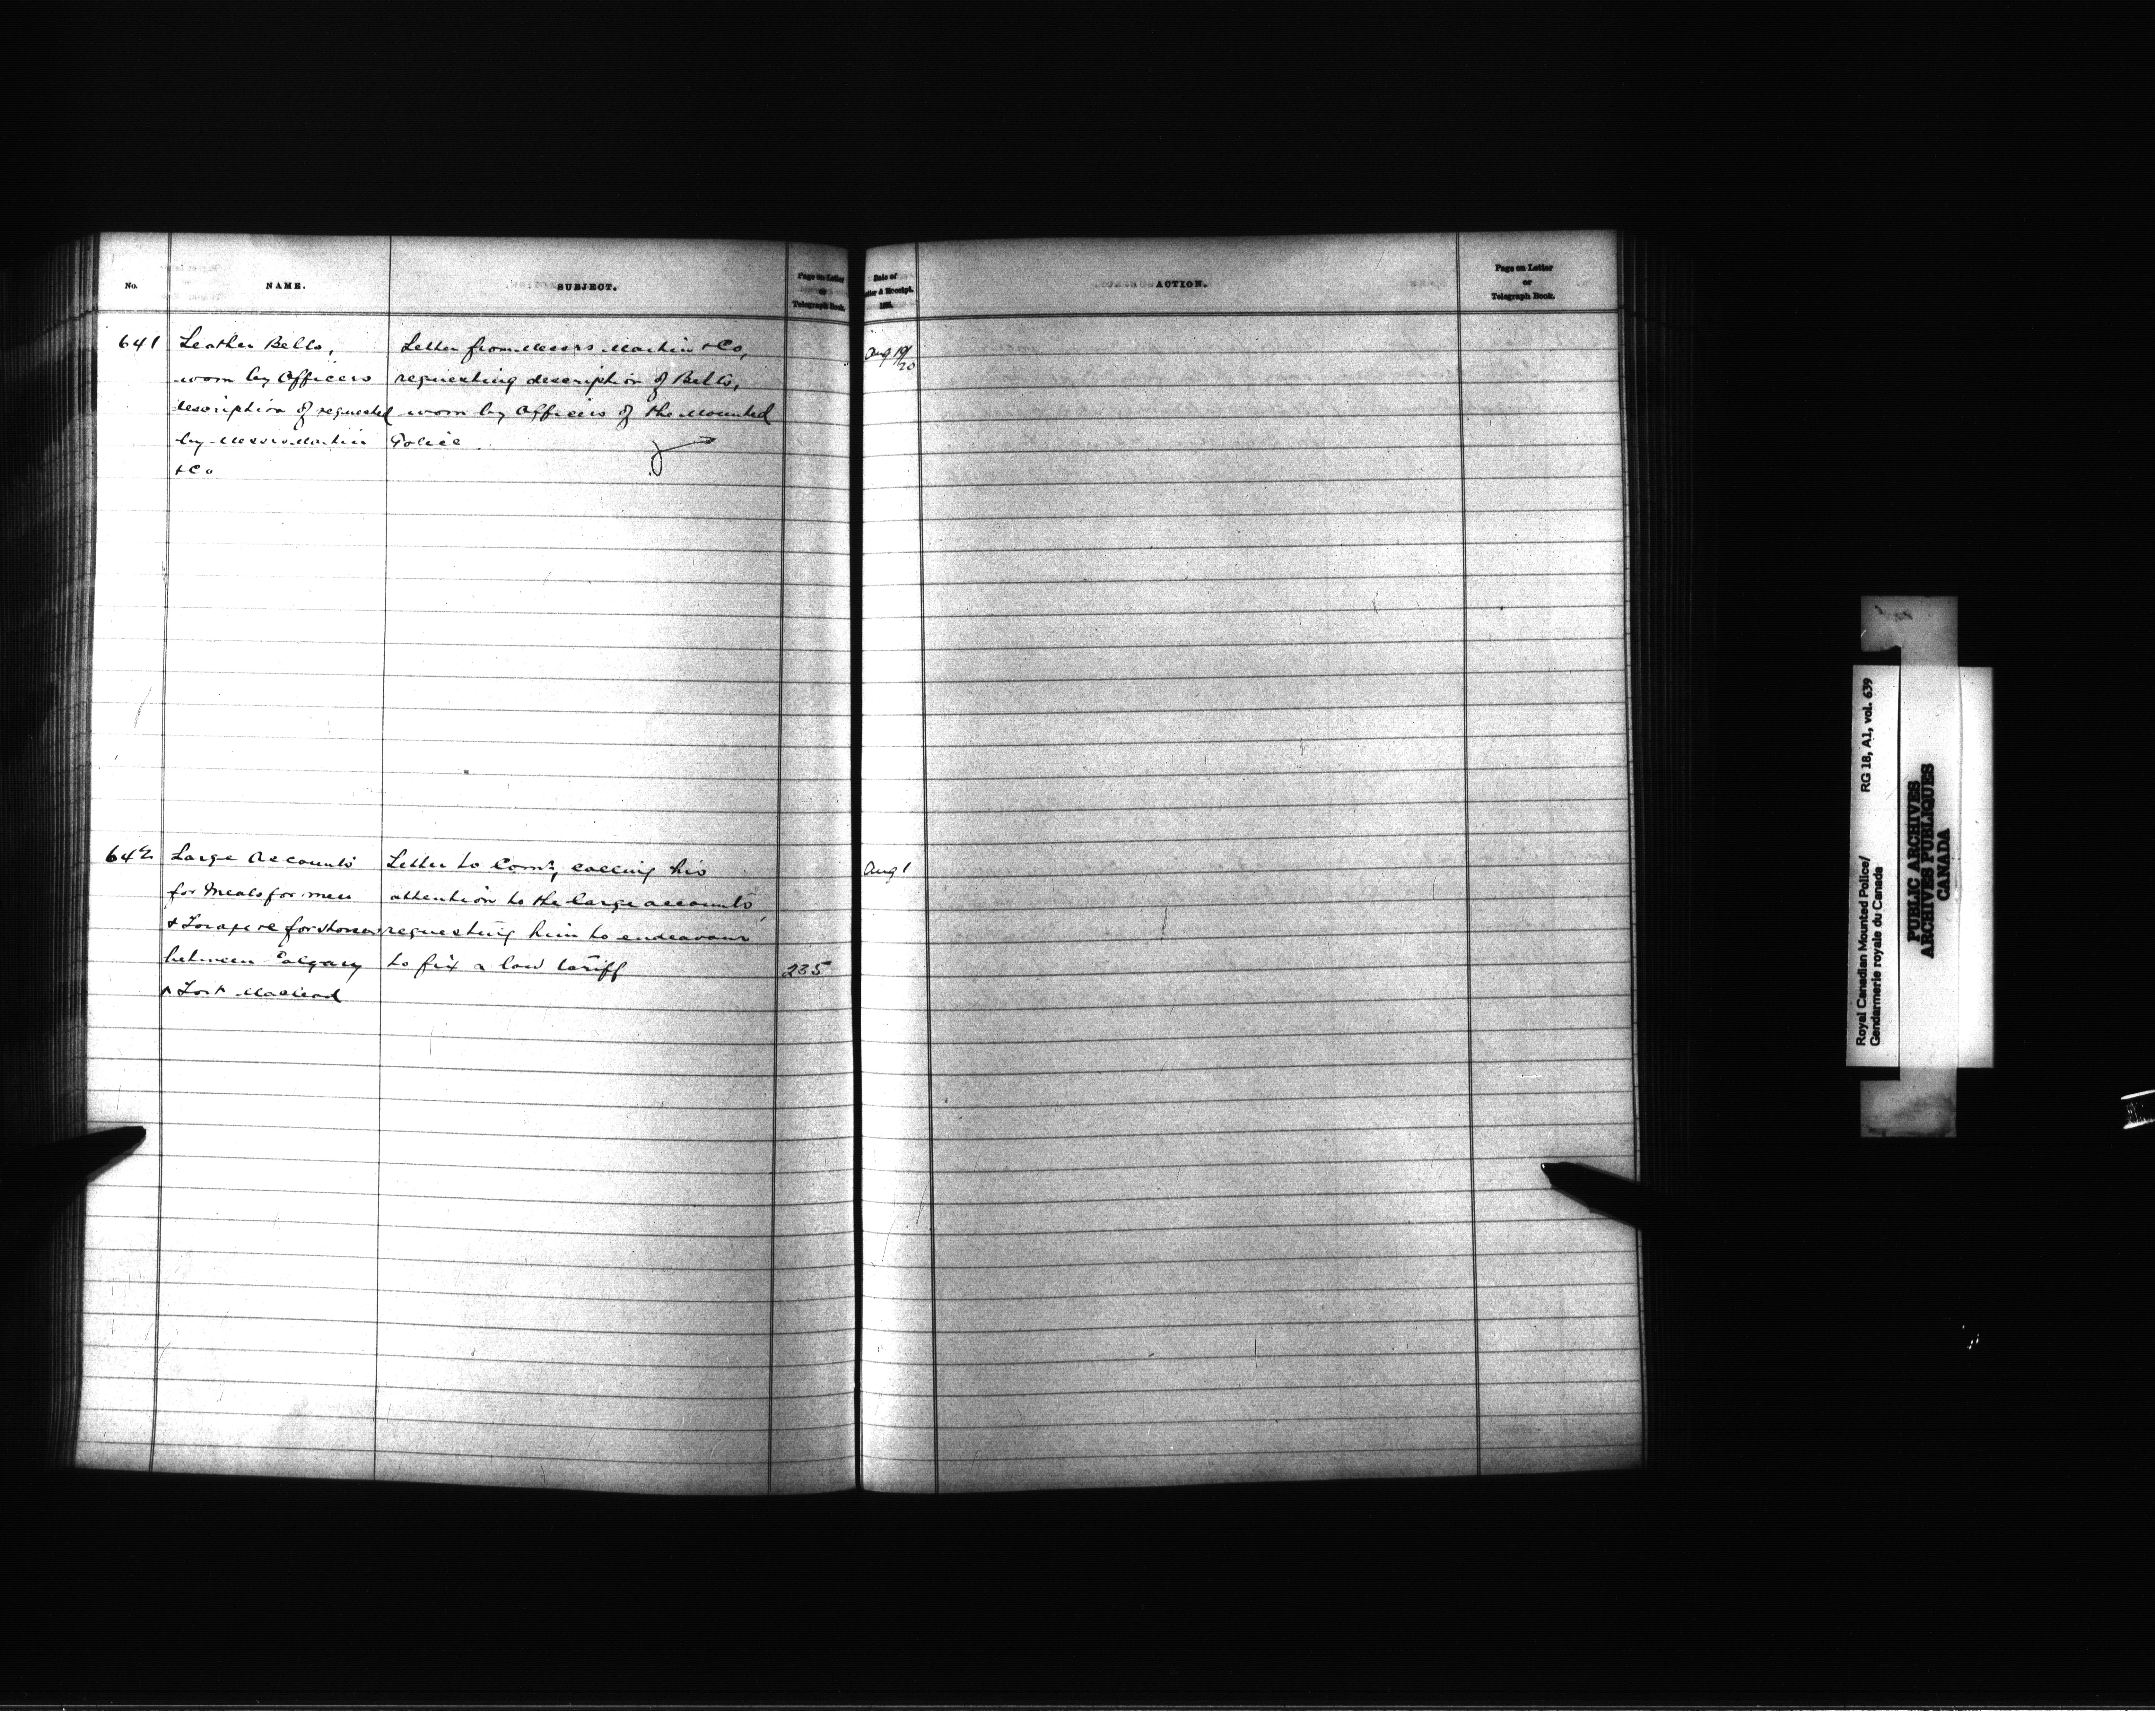 No.
NAME.
SUBJECT.
Page on Letter
or
Telegraph Book.
641
Leather Belts,
worn by Officers
description of requested
by Messrs Martin
& Co
Letter from Messrs Martin & Co,
requesting description of Belts,
worn by Officers of the Mounted
Police.
642
Large Accounts
for Meals for men
& Forage for horses
between Calgary
& Fort Macleod
Letter to Comr, calling his
attention to the large accounts,
requesting him to endeavour
to fix a low tariff
235
Date of
Letter & Receipt.
Aug 19/20
Aug 1
ACTION.
Page on Letter
or
Telegraph Book.
Royal Canadian Mounted Police/
Gendarmerie royale du Canada
RG 18, A1, vol. 639
PUBLIC ARCHIVES
ARCHIVES PUBLIQUES
CANADA